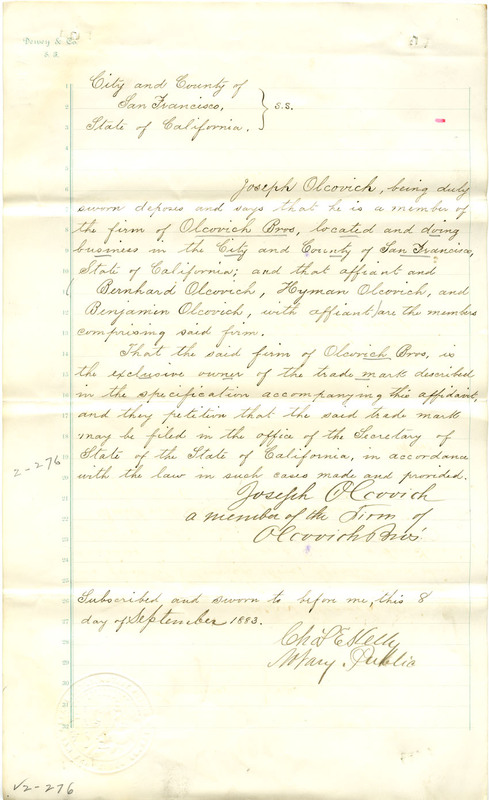 Dewey & Co.
City and County of
San Francisco,
State of California.
} S.S.
Joseph Olcovich, being duly
sworn deposes and says that he is a member of
the firm of Olcovich Bros, located and doing
business in the City and County of San Francisco,
State of California; and that affiant and
Bernhard Olcovich, Hyman Olcovich, and
Benjamin Olcovich, with affiant, are the members
comprising said firm.
That the said firm of Olcovich Bros, is
the exclusive owner of the trade mark described
in the specification accompanying this affidavit,
and they petition that the said trade mark
may be filed in the office of the Secretary of
State of the State of California, in accordance
with the law in such cases made and provided.
2-276
Joseph Olcovich
a member of the Firm of
Olcovich Bros.
Subscribed and sworn to before me, this 8
day of September 1883.
Chas E Kelly
Notary Public
√2-276